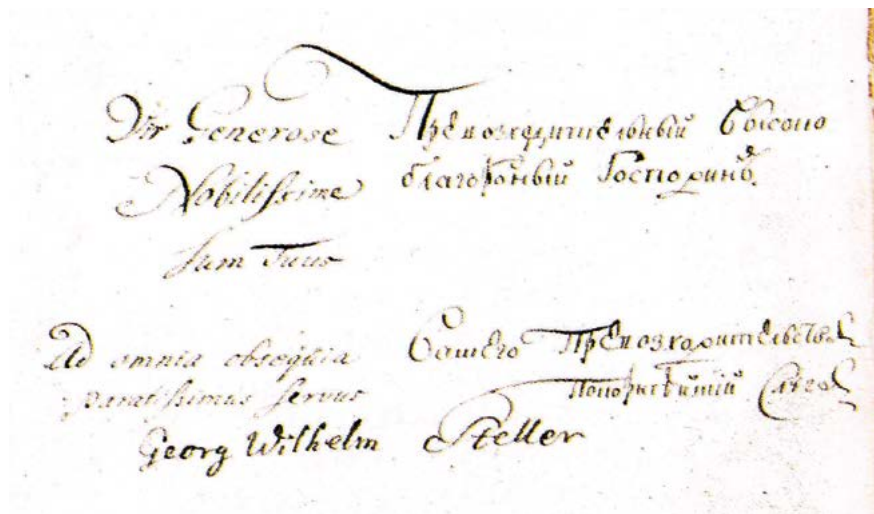 Vir Generose Превозходителный Высоко
Nobilissime благородный Господинъ.
Sum Tuus
Ad omnia obsequia Вашего Превозходителства
paratissimus servus покорнѣйшій Слуга
Georg Wilhelm Steller